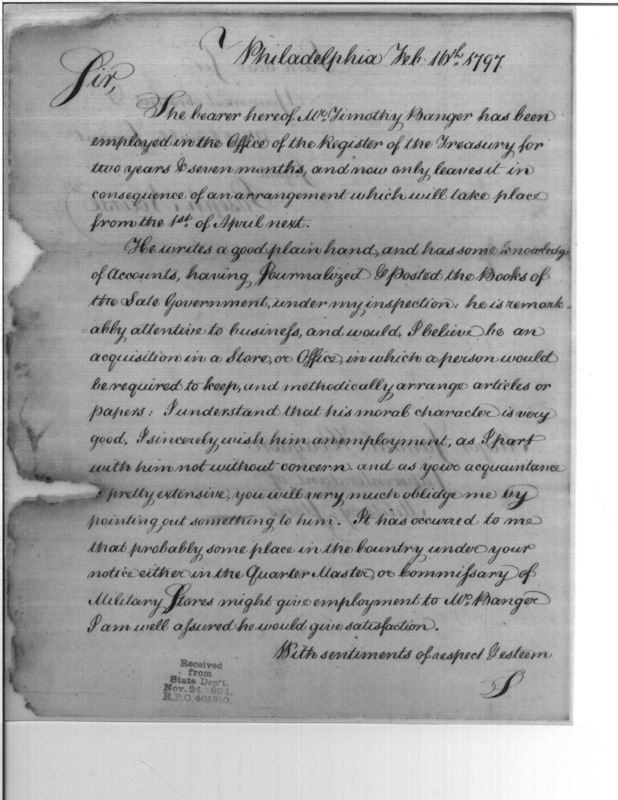 Philadelphia Feb. 16th. 1797
Sir,
The bearer hereof Mr. Timothy Banger has been
employed in the Office of the Register of the Treasury for
two years & seven months, and now only leaves it in
consequence of an arrangement which will take place
from the 1st. of April next.
He writes a good plain hand, and has some knowledge
of Accounts, having Journalized & posted the Books of
the Late Government, under my inspection: he is remark-
ably attentive to business, and would, I believe be an
acquisition in a Store, or Office, in which a person would
be required to keep, and methodically arrange articles or
papers: I understand that his moral character is very
good, I sincerely wish him an employment, as I part
with him not without concern. and as your acquaintance
pretty extensive, you will very much oblidge me by
pointing out something to him. It has occurred to me
that probably some place in the Country under your
notice either in the Quarter Master, or Commissary of
Military Stores might give employment to Mr. Banger
I am well assured he would give satisfaction.
With sentiments of respect & esteem
S
Received
from
State Dep't.
Nov. 24,
R.P.O.